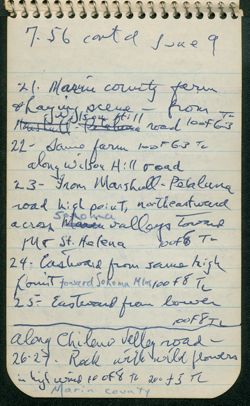 7.56 contd June 9
21. Marin county farm
& Haying scene - from
Wilson Hill
Marshall - Petaluma road 100 f 6.3
22 - Same farm 100 f 6.3 TL
along Wilson Hill road
23 - from Marshall-Petaluma
road high point, northeastward
Sonoma
across Marin valleys toward
Mt St. Helena 100 f 8 TL
24. Eastward from same high
point toward Sonoma Mts 100 f 8 TL
25 - Eastward from lower
100 f 8 TL
along Chileno Valley road -
26-27. Rock with wild flowers
in high wind 100 f 8 TL 200 f 3 TL
Marin County